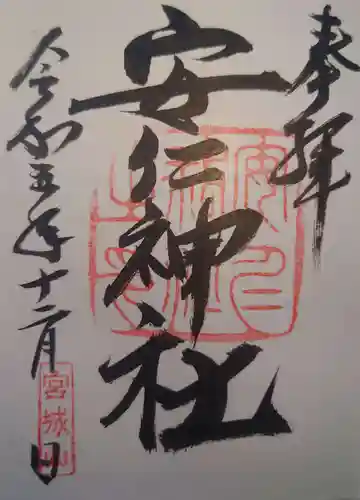 奉拝
安仁神社
令和五年十二月 日
宮城山